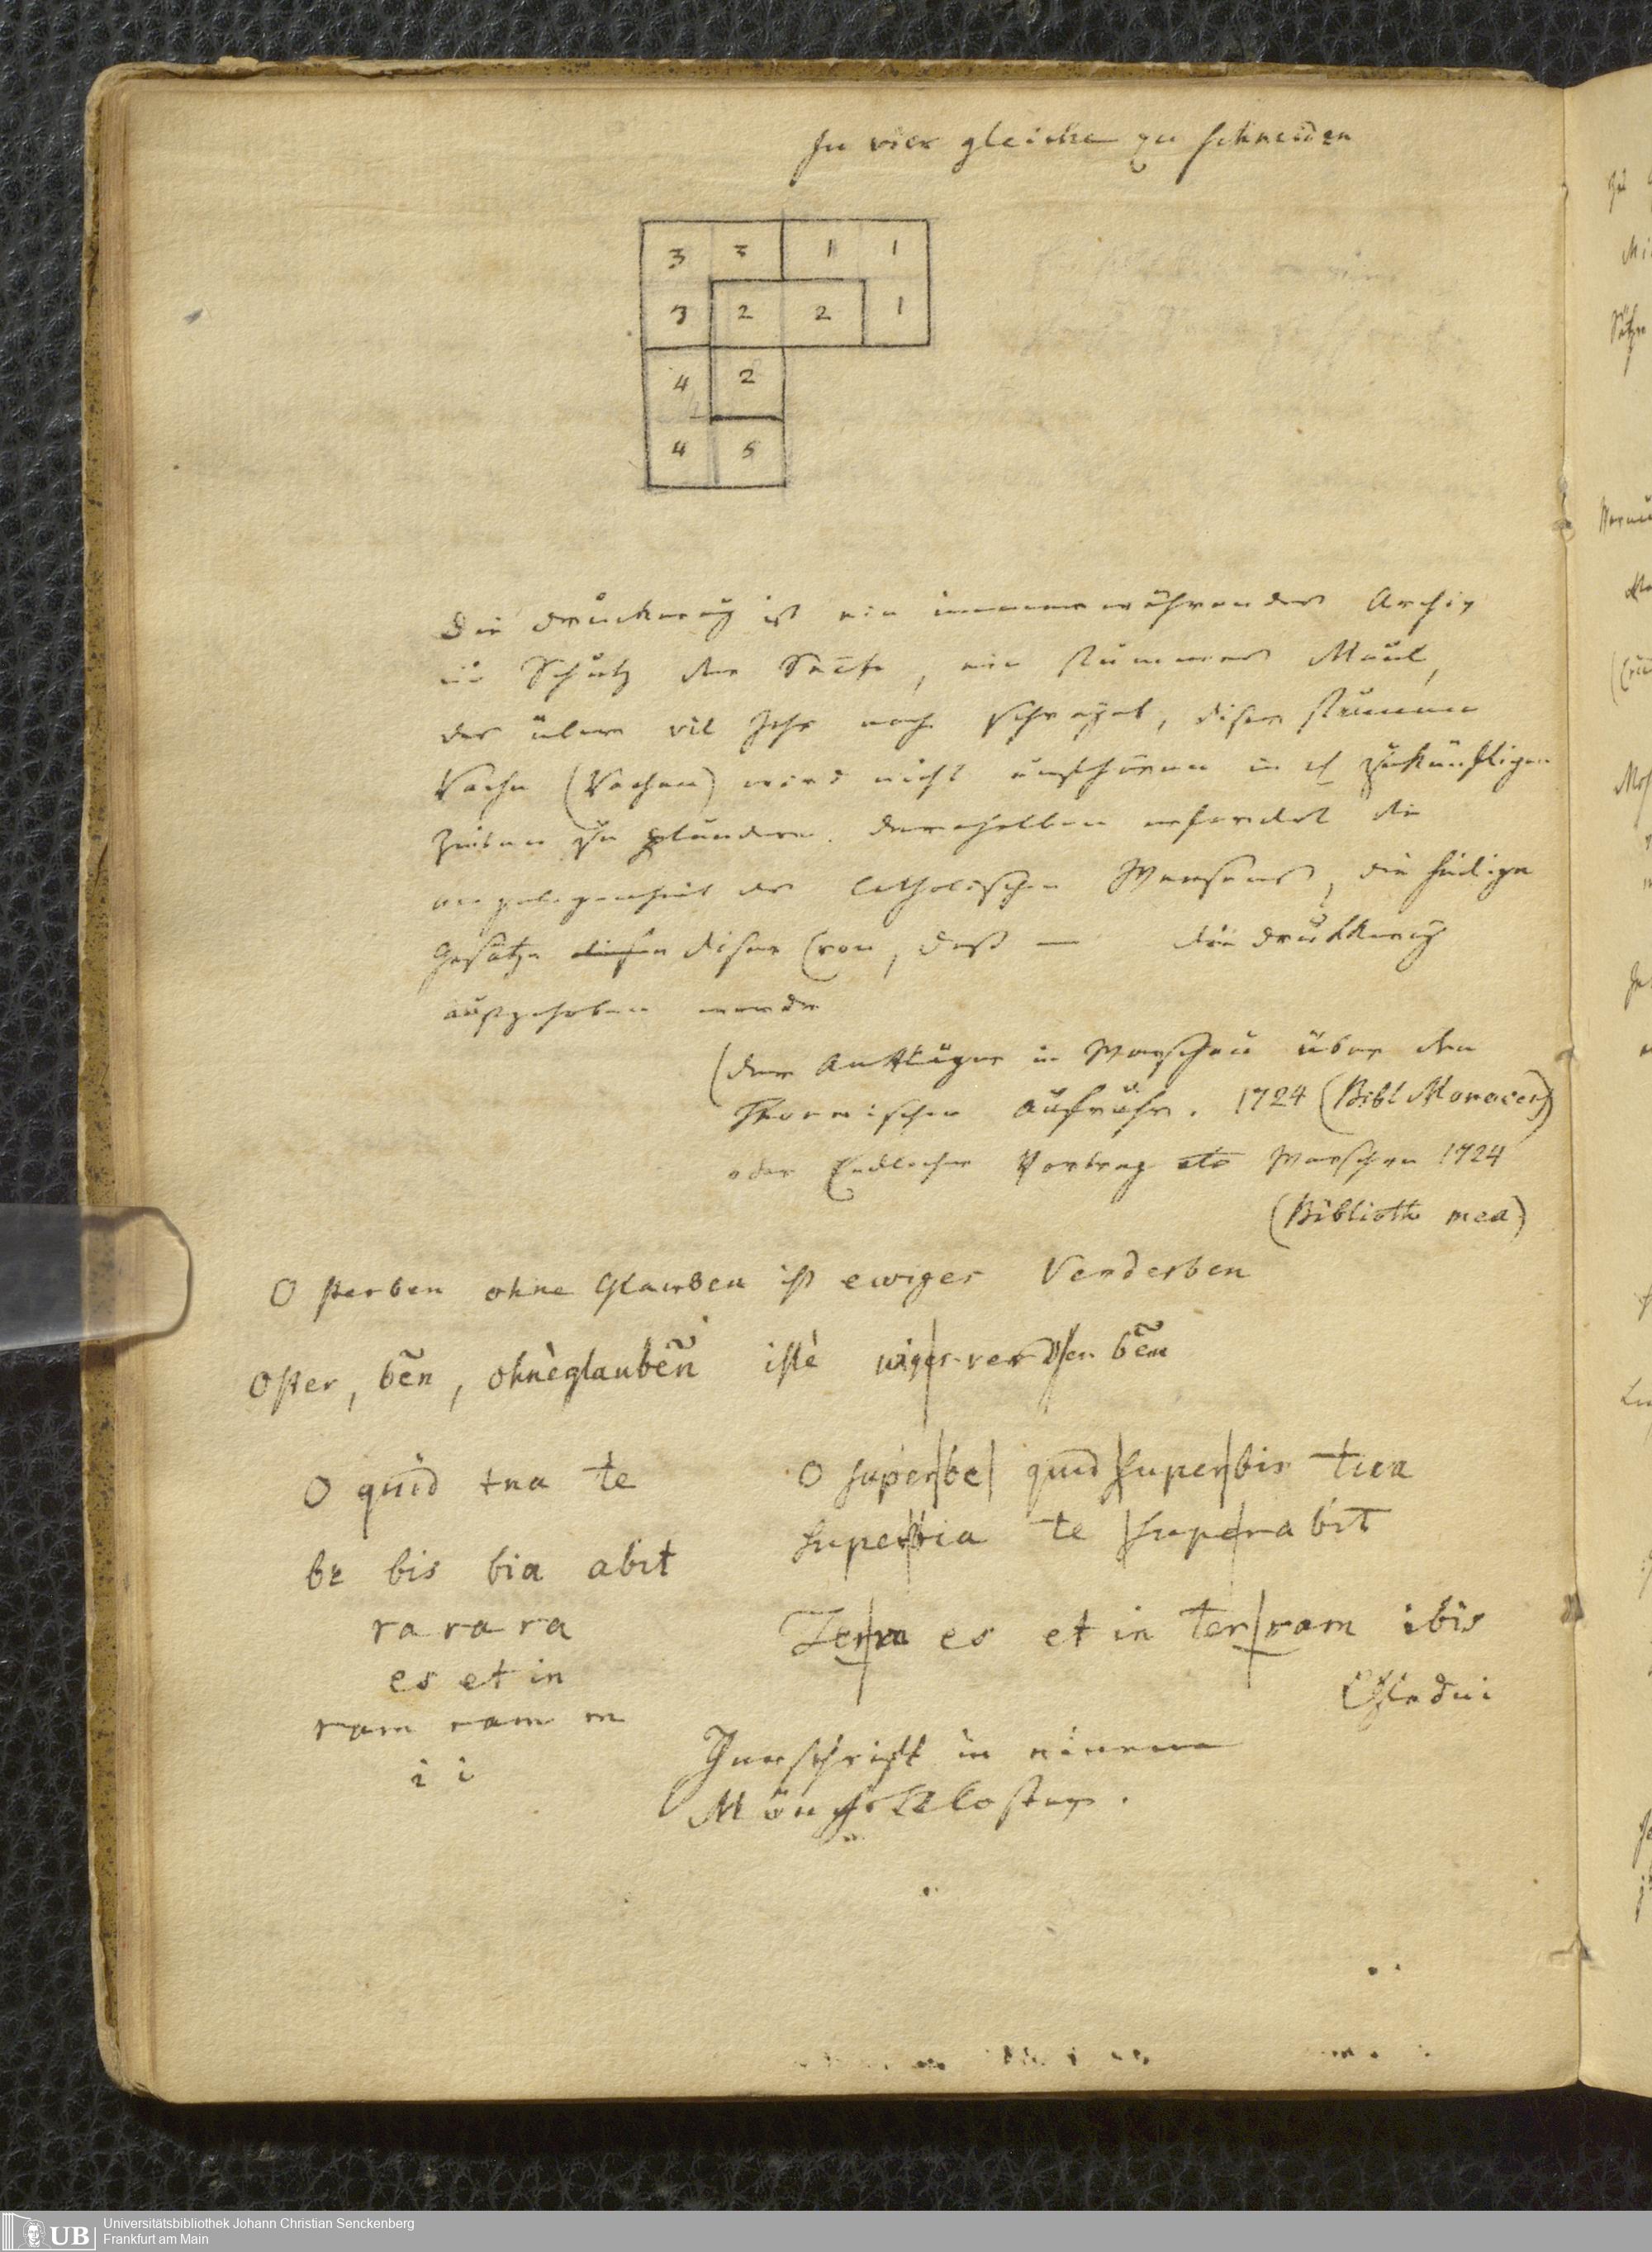 In vier gleiche zu schneiden
3 3 1 1
3 2 2 1
4 2
4 5
Die Druckerey ist ein immerwährender Archiv
Schutz der Secte, ein stummes Maul,
das über vil Jahr noch schreyet, diser stumme
(Rachen) wird nicht aufhören in zukünftigen
Zeiten zu plündern. derothalben erfordert die
angelegenheit des catholischen Weesens, die heilige
Gesätze disen diser Cron, daß — die druckerey
aufgehoben werde
(der Ankläger in Warschau über den
Thornischen Aufruhr. 1724 (Bibl Monacens)
oder Endlicher Vortrag etc Warschau 1724
(Biblioth mea)
O sterben ohne Glauben ist ewiges Verderben
Oster, ben, ohneglauben iste wiges verder ben
O quid tua te
be bis bia abit
ra ra ra
es et in
ram ram m
i i
O superbe quid superbis tua
superbia te superabit
Terra es et in terram ibis
Inschrift in einem
Mönchskloster.
Universitätsbibliothek Johann Christian Senckenberg
Frankfurt am Main
UB